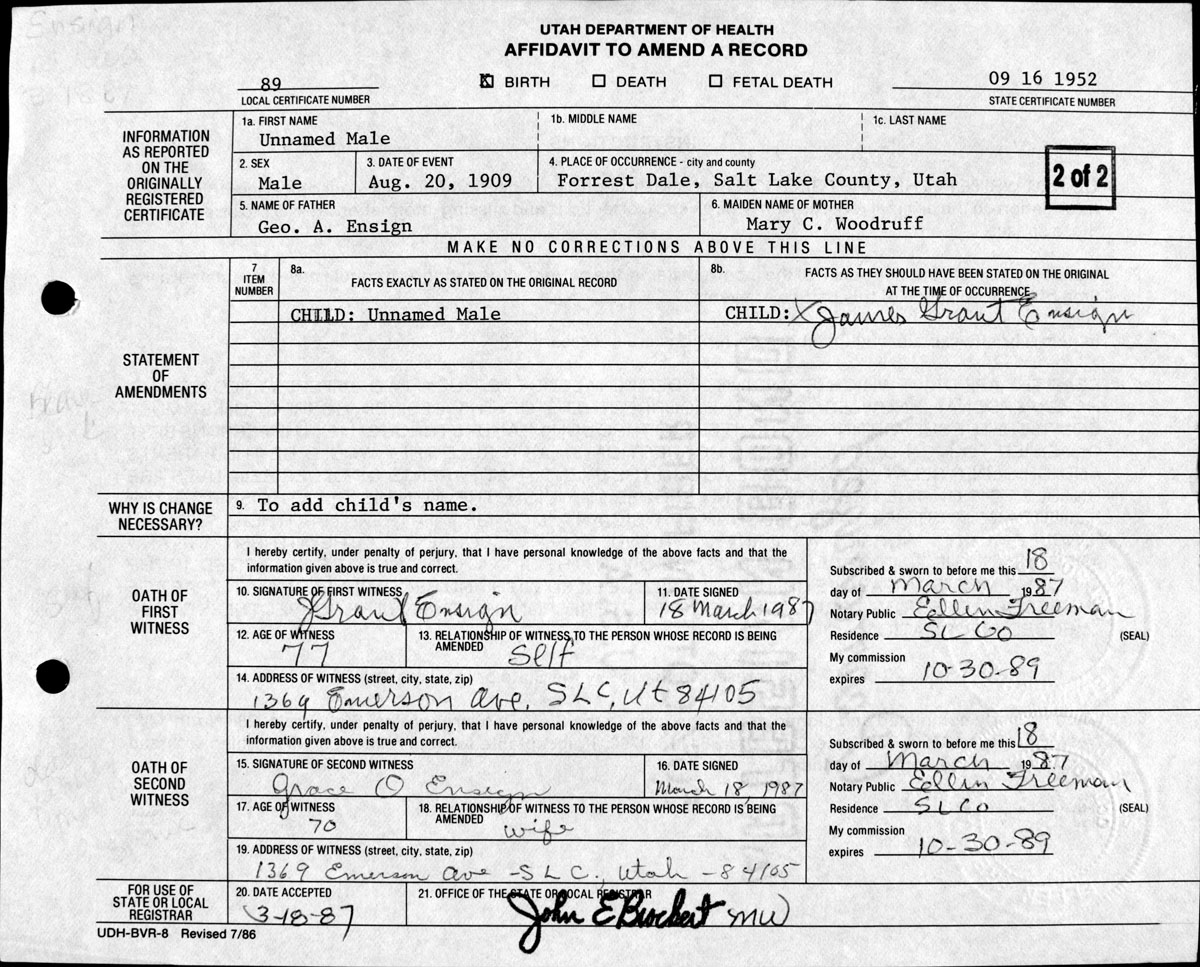 UTAH DEPARTMENT OF HEALTH
AFFIDAVIT TO AMEND A RECORD
89
LOCAL CERTIFICATE NUMBER
X BIRTH DEATH FETAL DEATH
09 16 1952
STATE CERTIFICATE NUMBER
INFORMATION AS REPORTED ON THE ORIGINALLY REGISTERED CERTIFICATE
1a. FIRST NAME
Unnamed Male
1b. MIDDLE NAME
1c. LAST NAME
2. SEX
Male
3. DATE OF EVENT
Aug. 20, 1909
4. PLACE OF OCCURRENCE - city and county
Forrest Dale, Salt Lake County, Utah
2 of 2
5. NAME OF FATHER
Geo. A. Ensign
6. MAIDEN NAME OF MOTHER
Mary C. Woodruff
MAKE NO CORRECTIONS ABOVE THIS LINE
STATEMENT OF AMENDMENTS
7 ITEM NUMBER
8a.
FACTS EXACTLY AS STATED ON THE ORIGINAL RECORD
8b.
FACTS AS THEY SHOULD HAVE BEEN STATED ON THE ORIGINAL
AT THE TIME OF OCCURRENCE
CHILD: Unnamed Male
CHILD: X James Grant Ensign
WHY IS CHANGE NECESSARY?
9. To add child's name.
OATH OF FIRST WITNESS
I hereby certify, under penalty of perjury, that I have personal knowledge of the above facts and that the
information given above is true and correct.
10. SIGNATURE OF FIRST WITNESS
J Grant Ensign
11. DATE SIGNED
18 March 1987
12. AGE OF WITNESS
77
13. RELATIONSHIP OF WITNESS TO THE PERSON WHOSE RECORD IS BEING AMENDED
Self
14. ADDRESS OF WITNESS (street, city, state, zip)
1369 Emerson Ave. SLC, Ut 84105
Subscribed & sworn to before me this 18
day of March 1987
Notary Public Edlen Freeman
Residence SL CO (SEAL)
My commission
expires 10-30-89
OATH OF SECOND WITNESS
I hereby certify, under penalty of perjury, that I have personal knowledge of the above facts and that the
information given above is true and correct.
15. SIGNATURE OF SECOND WITNESS
Grace O Ensign
16. DATE SIGNED
March 18, 1987
17. AGE OF WITNESS
70
18. RELATIONSHIP OF WITNESS TO THE PERSON WHOSE RECORD IS BEING AMENDED
wife
19. ADDRESS OF WITNESS (street, city, state, zip)
1369 Emerson Ave - SLC., Utah - 84105
Subscribed & sworn to before me this 18
day of March 1987
Notary Public Edlen Freeman
Residence SL CO (SEAL)
My commission
expires 10-30-89
FOR USE OF STATE OR LOCAL REGISTRAR
20. DATE ACCEPTED
3-18-87
21. OFFICE OF THE STATE OR LOCAL REGISTRAR
John E Brockert MW
UDH-BVR-8 Revised 7/86